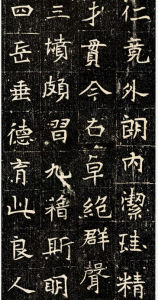 仁竟外朗內潔珪精
才貫今古卓絕群聲
三墳頗習九籀斯明
四岳垂德育此良人